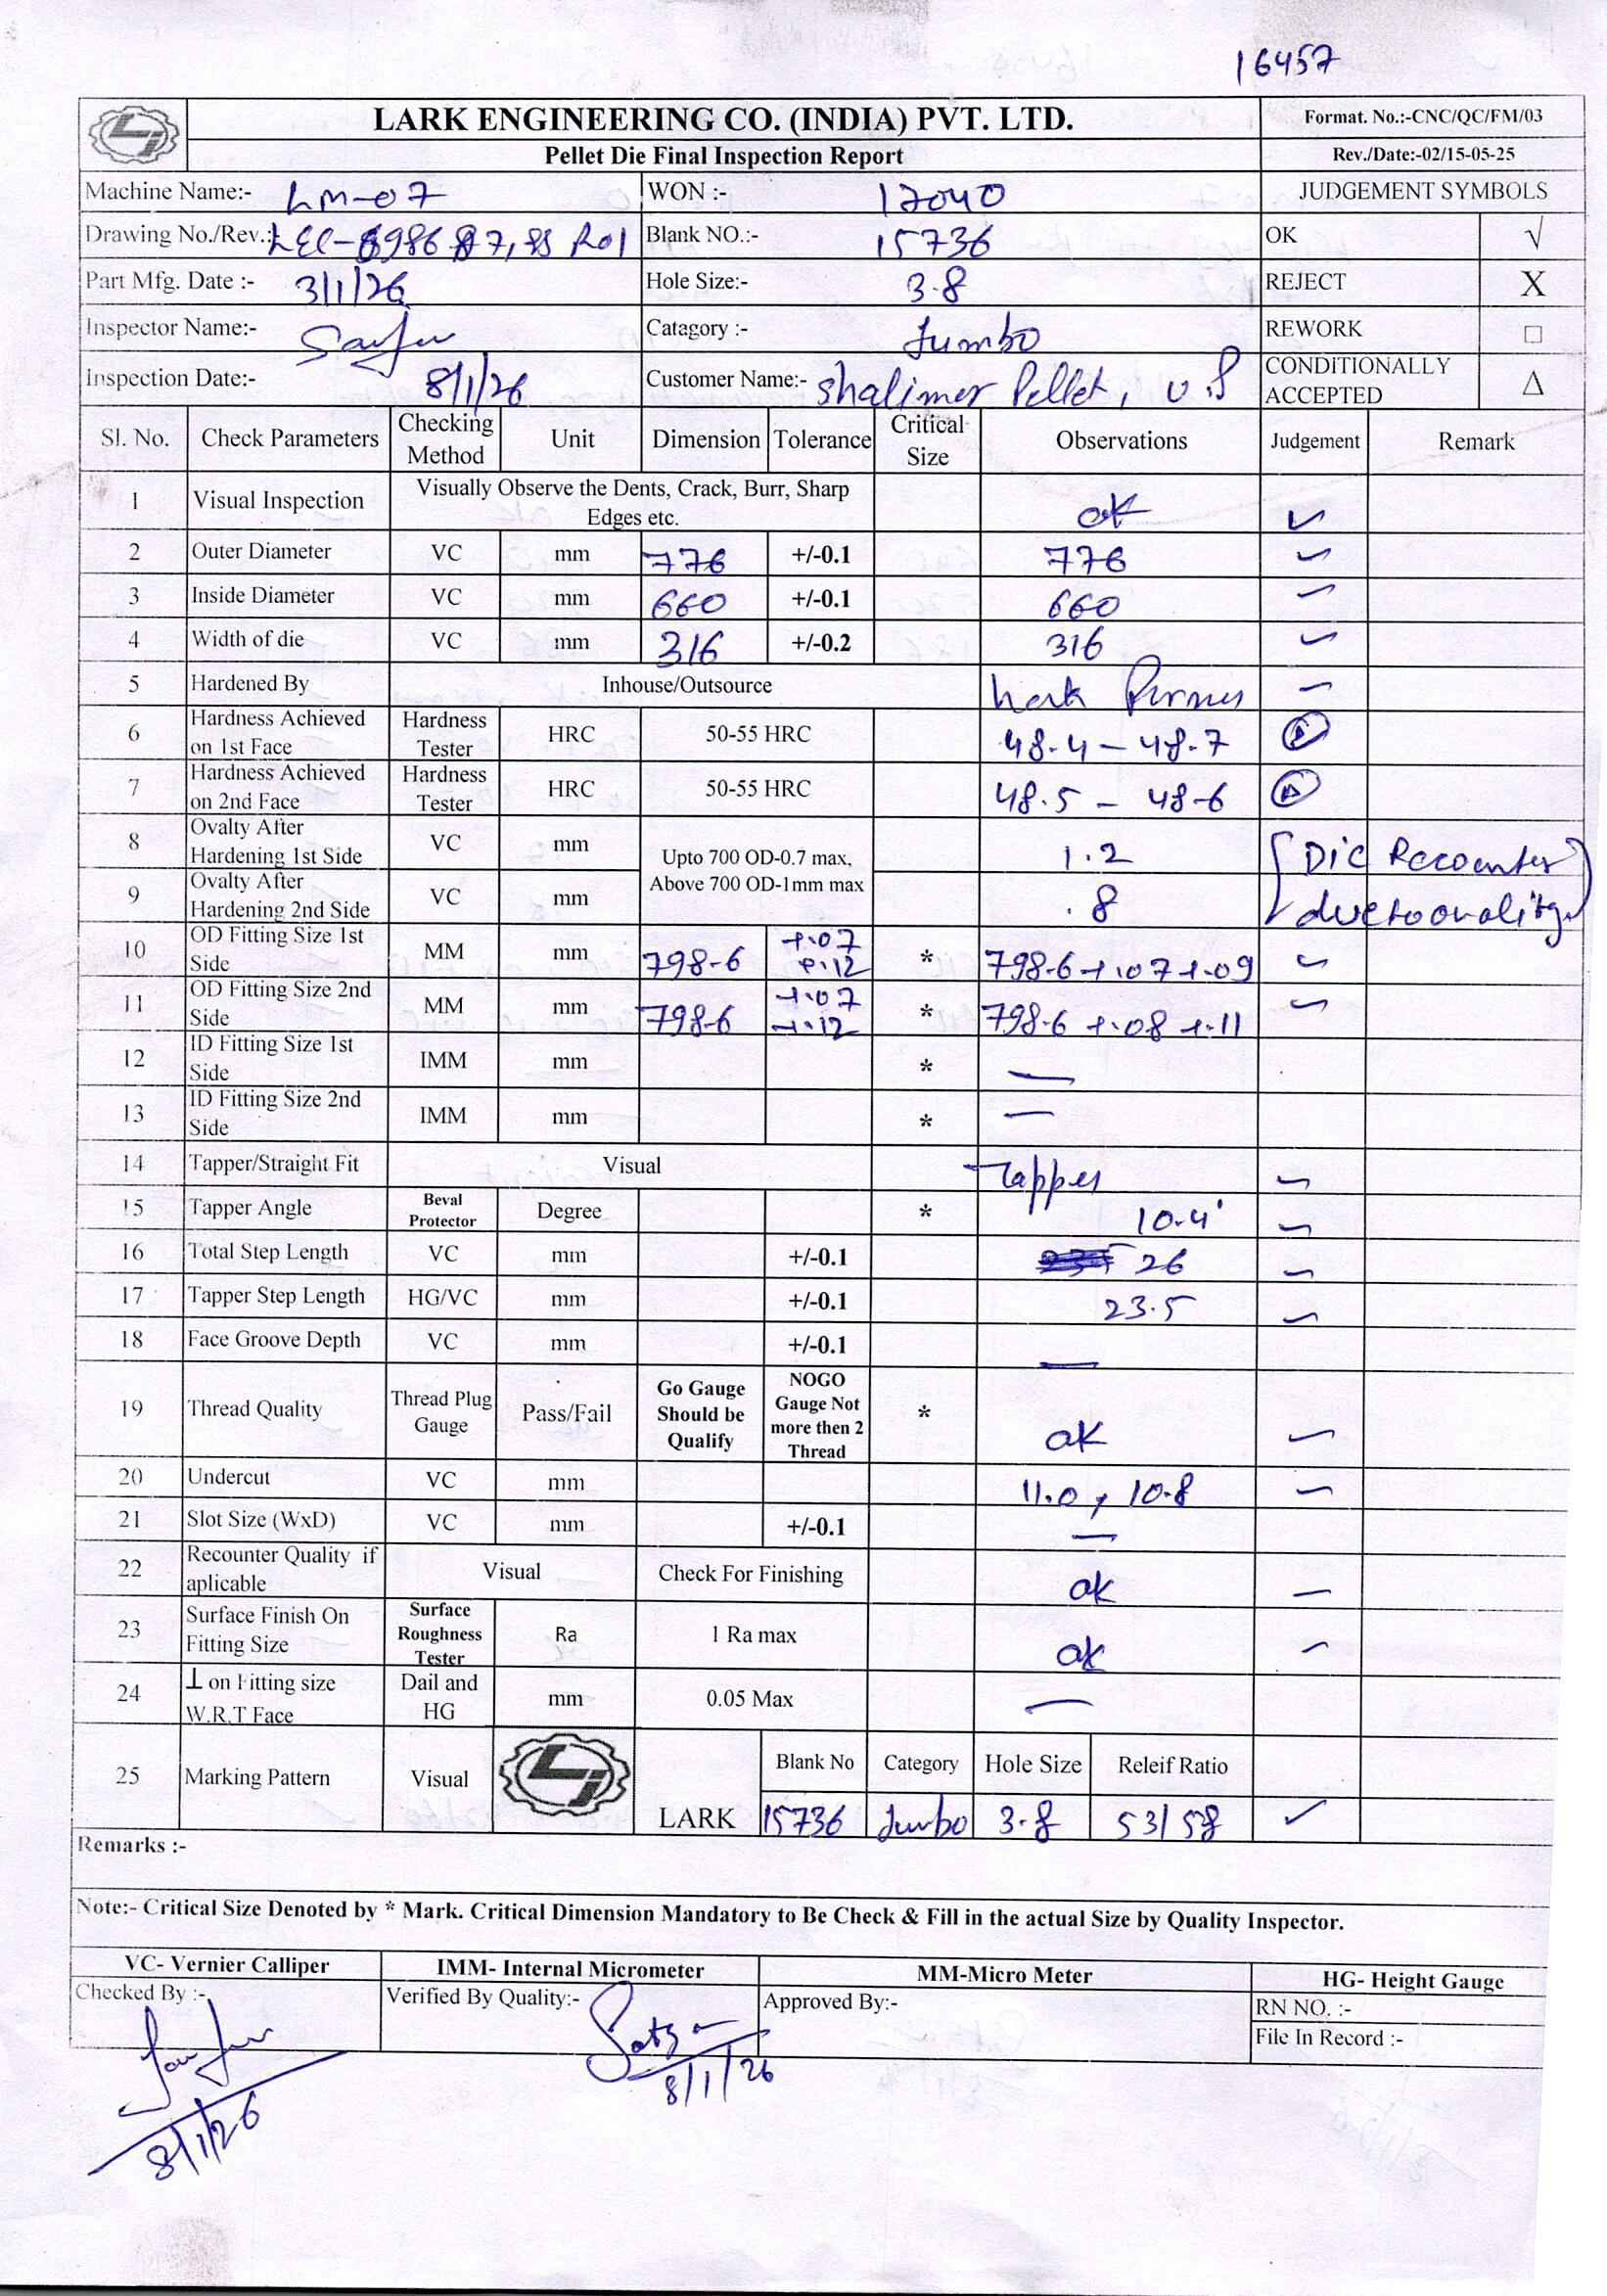 16457
LARK ENGINEERING CO. (INDIA) PVT. LTD.
Format. No.:-CNC/QC/FM/03
Pellet Die Final Inspection Report
Rev./Date:-02/15-05-25
Machine Name:- LM-07 WON :- 17040 JUDGEMENT SYMBOLS
Drawing No./Rev.: R01 Blank NO.:- 15736 OK √
Part Mfg. Date :- 3/1/26 Hole Size:- 3.8 REJECT X
Inspector Name:- Catagory :- Jumbo REWORK □
Inspection Date:- 8/1/26 Customer Name:- Shalimer Pellet, U.P CONDITIONALLY ACCEPTED Δ
Sl. No. Check Parameters Checking Method Unit Dimension Tolerance Critical Size Observations Judgement Remark
1 Visual Inspection Visually Observe the Dents, Crack, Burr, Sharp Edges etc. ok ✓
2 Outer Diameter VC mm 776 +/-0.1 776 ✓
3 Inside Diameter VC mm 660 +/-0.1 660 ✓
4 Width of die VC mm 316 +/-0.2 316 ✓
5 Hardened By Inhouse/Outsource Lark ✓
6 Hardness Achieved on 1st Face Hardness Tester HRC 50-55 HRC 48.4 – 48.7
7 Hardness Achieved on 2nd Face Hardness Tester HRC 50-55 HRC 48.5 – 48-6 Δ
8 Ovalty After Hardening 1st Side VC mm Upto 700 OD-0.7 max, Above 700 OD-1mm max 1.2 Die Recounter
9 Ovalty After Hardening 2nd Side VC mm .8 due to ovality
10 OD Fitting Size 1st Side MM mm 798-6 +.07 +.12 * 798-6 +.07 +.09 ✓
11 OD Fitting Size 2nd Side MM mm 798-6 +.07 +.12 * 798-6 +.08 +.11 ✓
12 ID Fitting Size 1st Side IMM mm * —
13 ID Fitting Size 2nd Side IMM mm * —
14 Tapper/Straight Fit Visual Tapper ✓
15 Tapper Angle Beval Protector Degree * 10.4' ✓
16 Total Step Length VC mm +/-0.1 26 ✓
17 Tapper Step Length HG/VC mm +/-0.1 23.5 ✓
18 Face Groove Depth VC mm +/-0.1 —
19 Thread Quality Thread Plug Gauge Pass/Fail Go Gauge Should be Qualify NOGO Gauge Not more then 2 Thread * ok ✓
20 Undercut VC mm 11.0, 10.8 ✓
21 Slot Size (WxD) VC mm +/-0.1 —
22 Recounter Quality if aplicable Visual Check For Finishing ok ✓
23 Surface Finish On Fitting Size Surface Roughness Tester Ra 1 Ra max ok ✓
24 ⊥ on Fitting size W.R.T Face Dail and HG mm 0.05 Max —
25 Marking Pattern Visual LARK Blank No Category Hole Size Releif Ratio
15736 Jumbo 3.8 53/58 ✓
Remarks :-
Note:- Critical Size Denoted by * Mark. Critical Dimension Mandatory to Be Check & Fill in the actual Size by Quality Inspector.
VC- Vernier Calliper IMM- Internal Micrometer MM-Micro Meter HG- Height Gauge
Checked By :- Verified By Quality:- Approved By:- RN NO. :-
File In Record :-
8/1/26
8/1/26